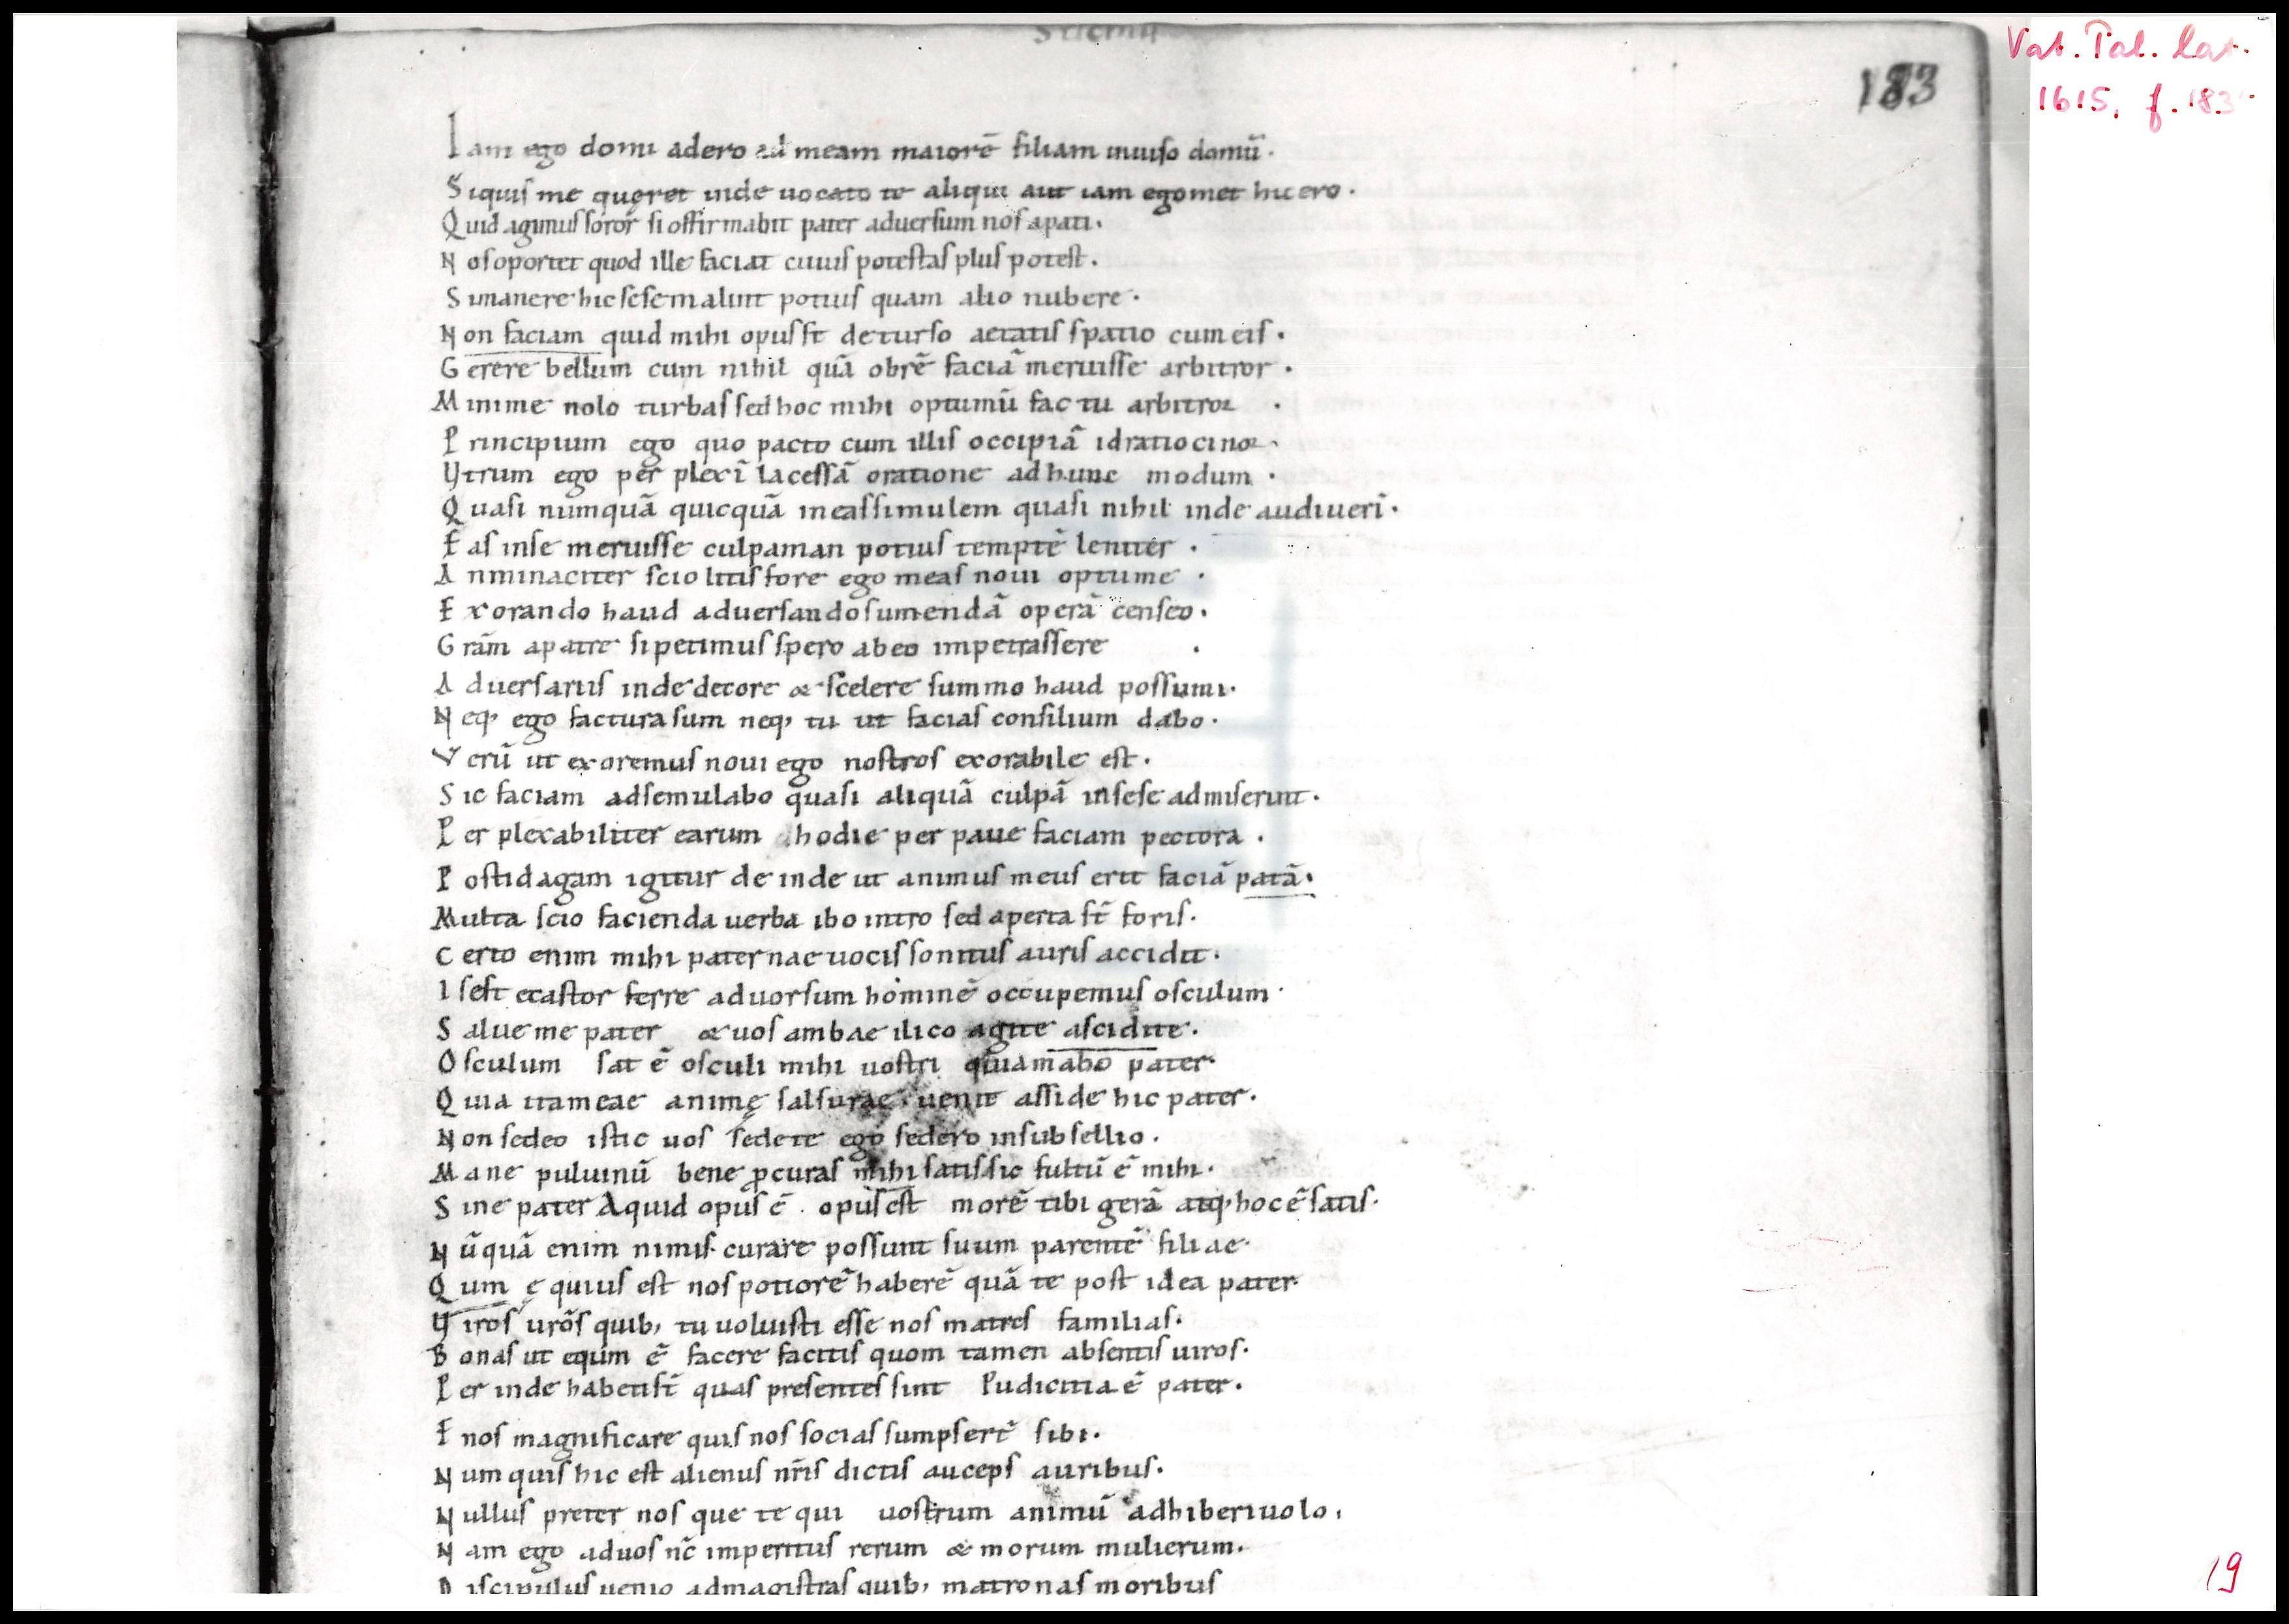 Stichus
Vat. Pal. lat.
1615, f. 183r
183
Iam ego domi adero ad meam maiorē filiam inuiso domū.
Siquis me quęret inde uocato te aliqui aut iam egomet hic ero.
Quid agimus soror si offirmabit pater aduersum nos apati.
Nos oportet quod ille faciat cuius potestas plus potest.
Si manere hic sese malint potius quam alio nubere.
Non faciam quid mihi opusst deturso aetatis spatio cum eis.
Gerere bellum cum nihil quā obrē faciā meruisse arbitror.
Minime nolo turbas sed hoc mihi optumū factu arbitror.
Principium ego quo pacto cum illis occipiā id ratiocinor.
Vtrum ego per plexī lacessā oratione ad hunc modum.
Quasi numquā quicquā in eas simulem quasi nihil inde audiueri.
Eas in se meruisse culpam an potius temptē leniter.
An minaciter scio litis fore ego meas noui optume.
Exorando haud aduersando sumendā operā censeo.
Grām a patre si petimus spero ab eo impetrassere.
Aduersariis inde decore & scelere summo haud possumi.
Neq; ego factura sum neq; tu ut facias consilium dabo.
Verū ut exoremus noui ego nostros exorabile est.
Sic faciam adsemulabo quasi aliquā culpā in sese admiserint.
Per plexabiliter earum hodie per paue faciam pectora.
Post id agam igitur deinde ut animus meus erit faciā patā.
Multa scio facienda uerba ibo intro sed aperta st̄ foris.
Certo enim mihi paternae uocis sonitus auris accidit.
Is est ecastor ferre aduorsum hominē occupemus osculum.
Salue me pater & uos ambae ilico agite ascidite.
Osculum sat ē osculi mihi uostri qui amabo pater.
Quia ita meae animę salsurae uenit asside hic pater.
Non sedeo istic uos sedete ego sedero in subsellio.
Mane puluinū bene ꝓcuras mihi satis sic fultū ē mihi.
Sine pater Aquid opus ē. opus est morē tibi gerā atq; hoc ē satis.
Nūquā enim nimis curare possunt suum parentē filiae.
Qum ęquius est nos potiorē haberē quā te post idea pater
Viros urōs quib; tu uoluisti esse nos matres familias.
Bonas ut equm ē facere facitis quom tamen absentis uiros.
Per inde habetis st̄ quas presentes sint Pudicitia ē pater.
Enos magnificare quis nos socias sumpserē sibi.
Num quis hic est alienus nr̄is dictis auceps auribus.
Nullus preter nos que te qui uostrum animū adhiberi uolo.
Nam ego ad uos nc̄ imperitus rerum & morum mulierum.
Discipulus uenio ad magistras quib; matronas moribus
19